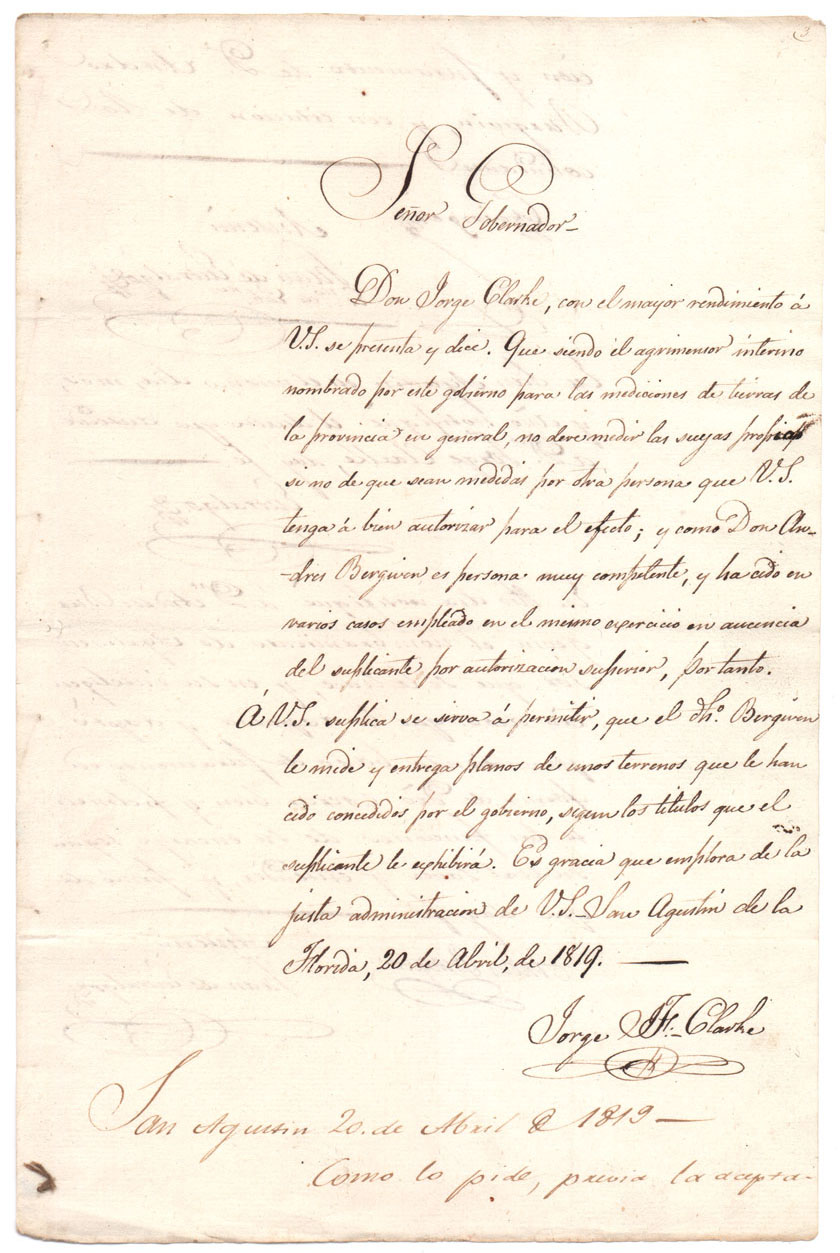 3
Señor Gobernador_
Don Jorge Clarke, con el mayor rendimiento á
V.S. se presenta y dice. Que siendo el agrimensor interino
nombrado por este gobierno para las mediciones de tierras de
la provincia en general, no deve medir las suyas propias
si no de que sean medidas por otra persona que V.S.
tenga á bien autorizar para el efecto; y como Don An-
-dres Bergiven es persona muy competente, y ha cido en
varios casos empleado en el mismo exercicio en aucencia
del suplicante por autorizacion superior, por tanto.
Á V.S. suplica se sirva á permitir, que el dho. Bergiven
le mide y entrega planos de unos terrenos que le han
cido concedidos por el gobierno, segun los titulos que el
suplicante le exhibirá. Es gracia que emplora de la
justa administracion de V.S._San Agustin de la
Florida, 20 de Abril, de 1819. —
Jorge J. F. Clarke
San Agustin 20. de Abril de 1819 —
Como lo pide, previa la acepta-